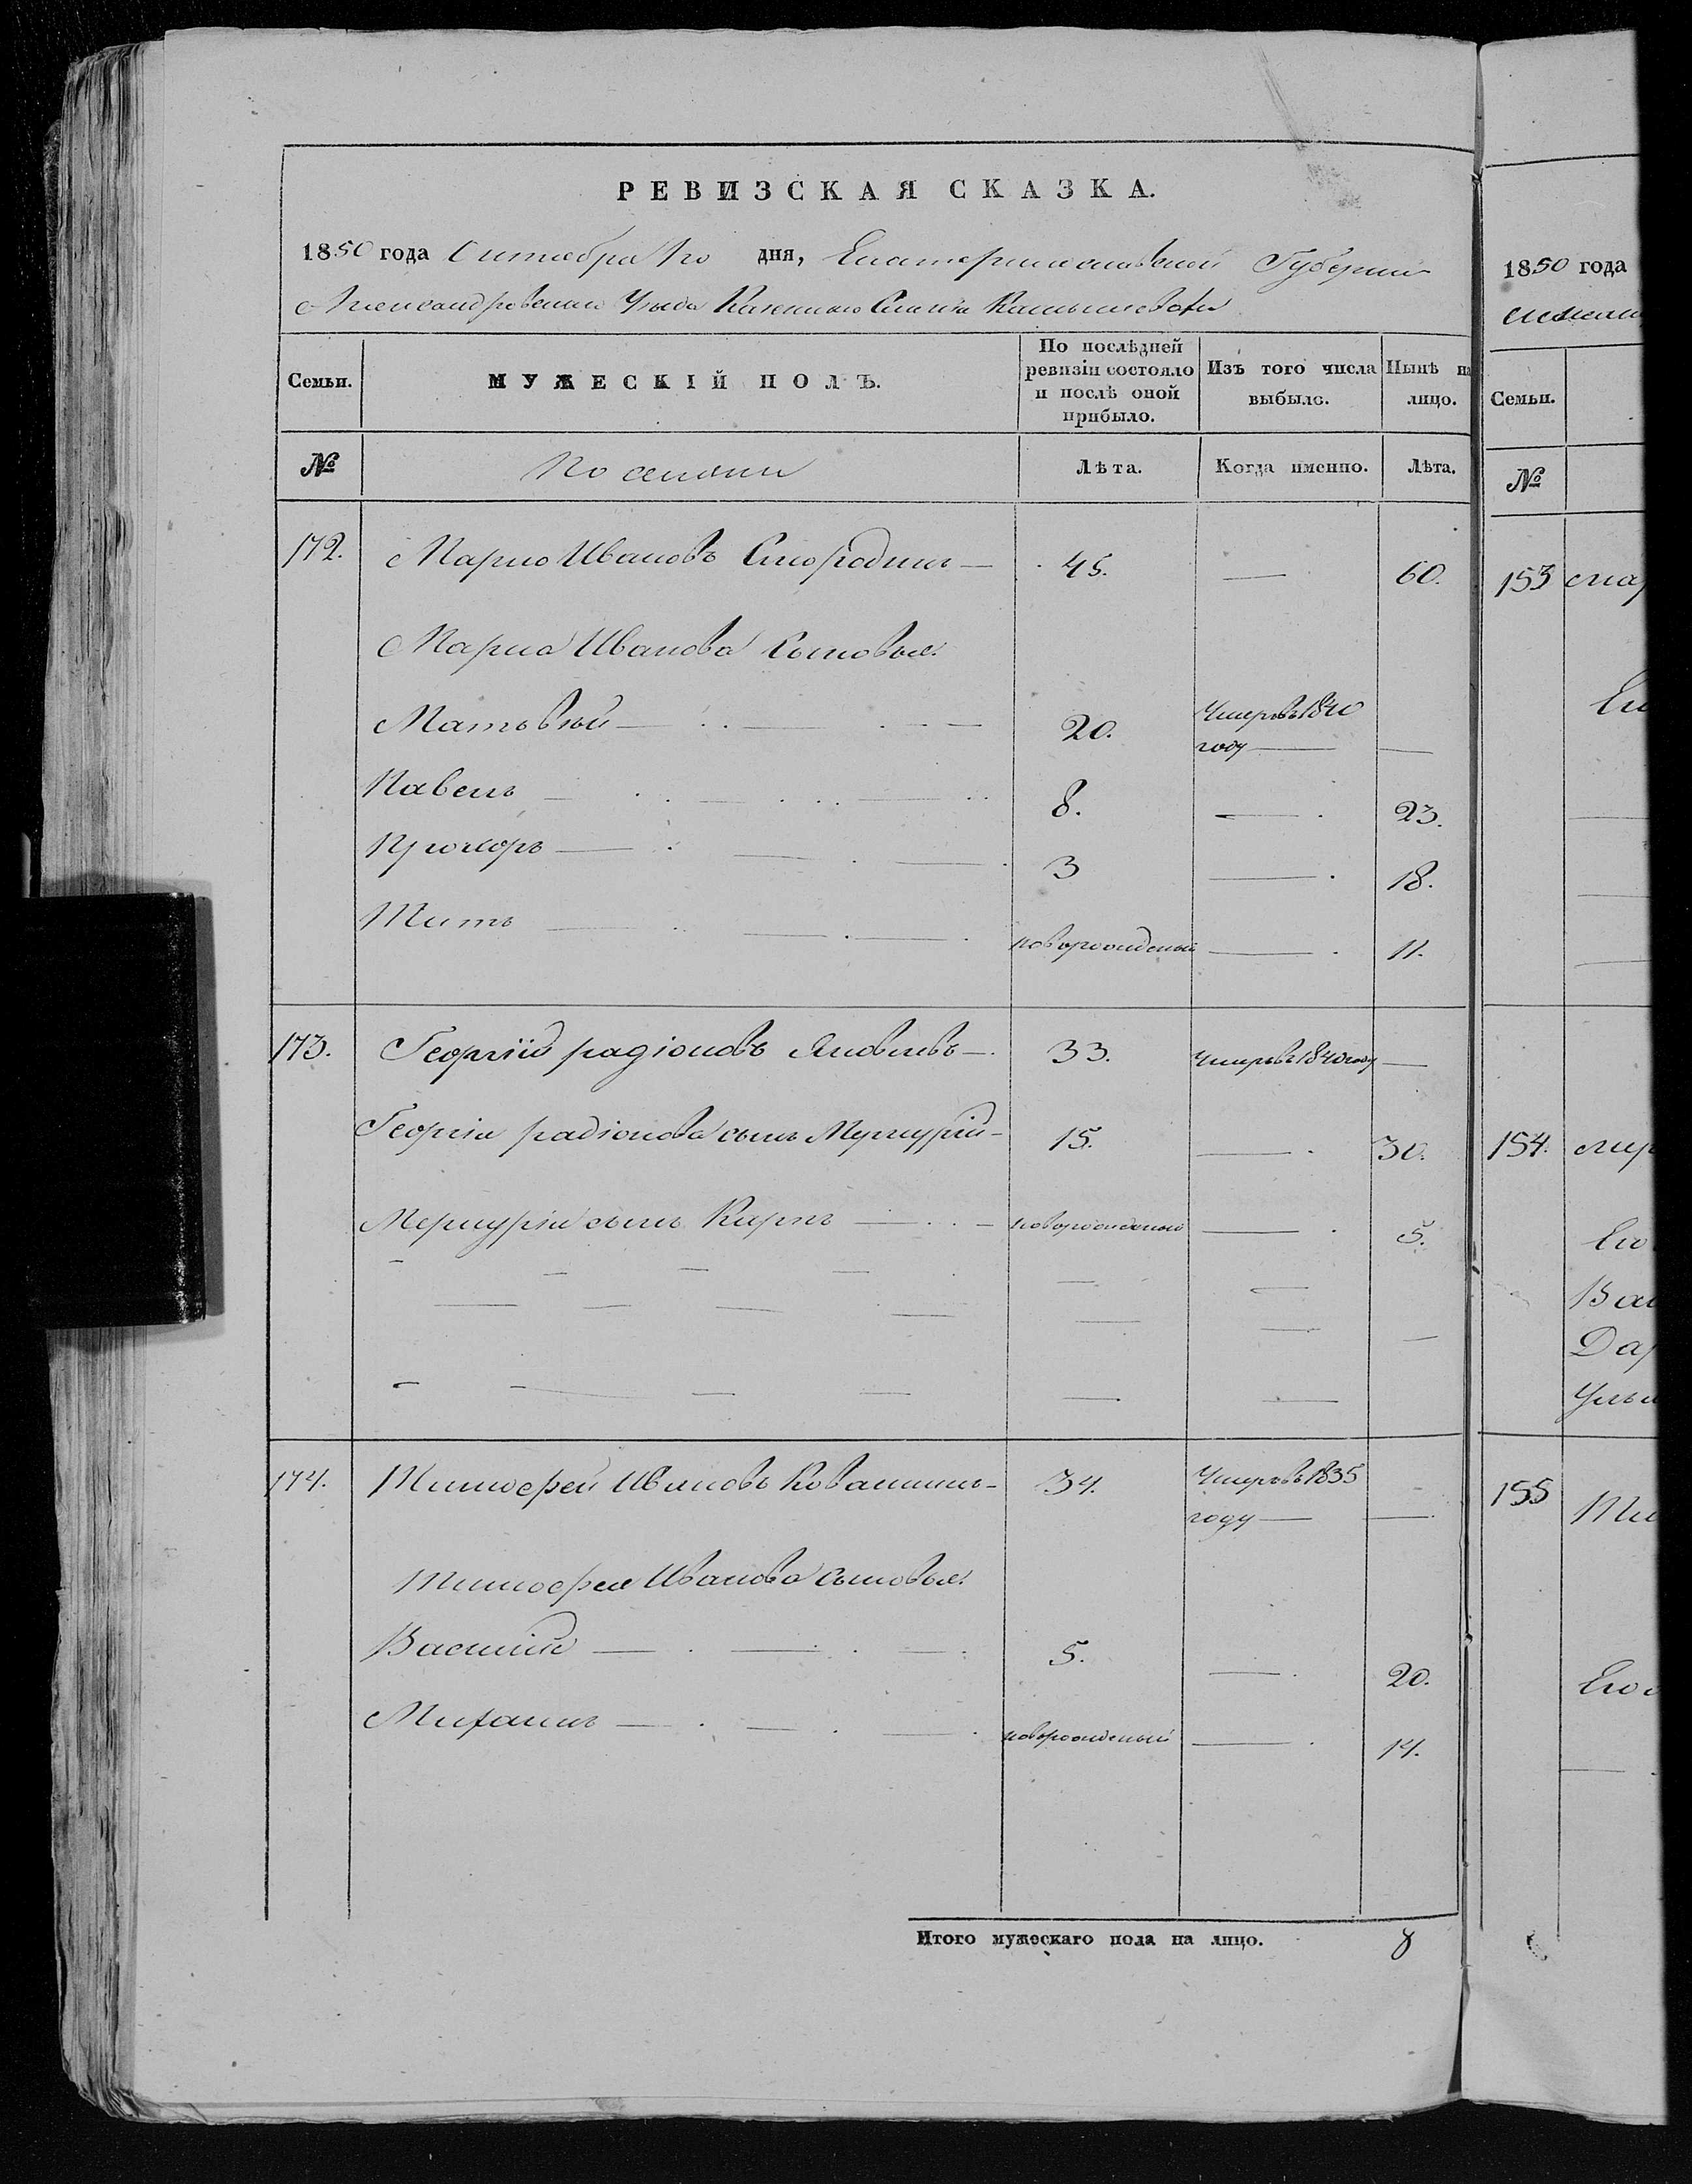 РЕВИЗСКАЯ СКАЗКА.
1850 года Октября 10 дня, Екатеринославской Губернии
Александровскаго Уезда Казеннаго Селения
Семьи.
МУЖЕСКІЙ ПОЛЪ.
По послѣдней ревизіи состояло и послѣ оной прибыло.
Изъ того числа выбыло.
Нынѣ на лицо.
№
Лѣта.
Когда именно.
Лѣта.
172. Марко Ивановъ Смородинъ 45. — 60.
Марка Иванова сыновья.
Матьвѣй 20. Умеръ въ 1840 году —
Павелъ 8. — 23.
Прохоръ 3 — 18.
Титъ новорожденый — 11.
173. Георгій радіоновъ Яковлевъ 33. Умеръ въ 1840 году —
Георгія радіонова сынъ Меркурій 15. — 30.
Меркурія сынъ Карпъ новорожденый — 5.
174. Тимофей Ивановъ 34. Умеръ въ 1835 году —
Тимофея Иванова сыновья.
Василій 5. — 20.
Михаилъ новорожденый — 14.
Итого мужескаго пола на лицо. 8
1850 года
Семьи.
№
153 мар
154.
Ва
Дар
155 Ти